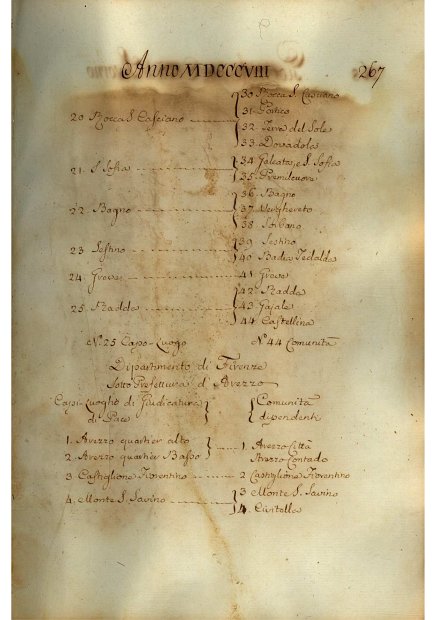 Anno MDCCCVIII 267
30 Rocca S. Casciano
20 Rocca S. Casciano 31 Portico
32 Terra del Sole
33 Dovadola
21 S. Sofia 34 Galeata, e S. Sofia
35 Premilcuore
36 Bagno
22 Bagno 37 Verghereto
38 Sorbano
23 Sestino 39 Sestino
40 Badia Tedalda
24 Greve 41 Greve
42 Radda
25 Radda 43 Gajole
44 Castellina
N.º 25 Capo-Luogo N.º 44 Comunità
Dipartimento di Firenze
Sotto Prefettura d'Arezzo
Capi-Luoghi di Giudicatura Comunità
di Pace dipendenti
1. Arezzo quartier alto 1 Arezzo Città
2. Arezzo quartier Basso Arezzo Contado
3 Castiglione Fiorentino 2 Castiglione Fiorentino
4. Monte S. Savino 3 Monte S. Savino
4.